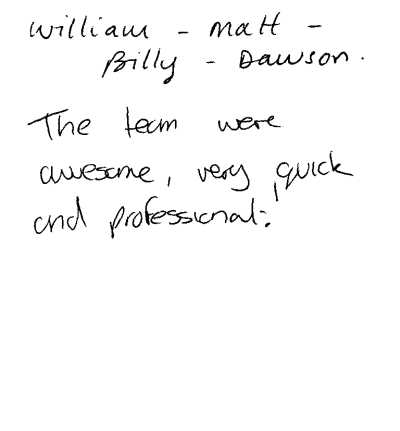 William - Matt -
Billy - Dawson.
The team were
awesome, very quick
and professional.